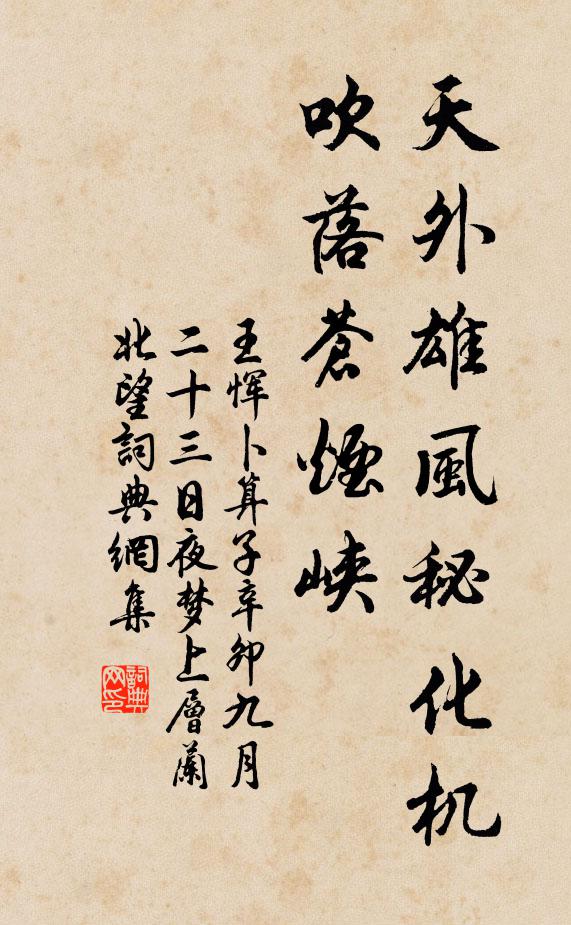 天外雄風秘化机
吹落蒼煙峡
王惲卜算子辛卯九月
二十三日夜梦上層蘭
北望詞典網集
詞典网印